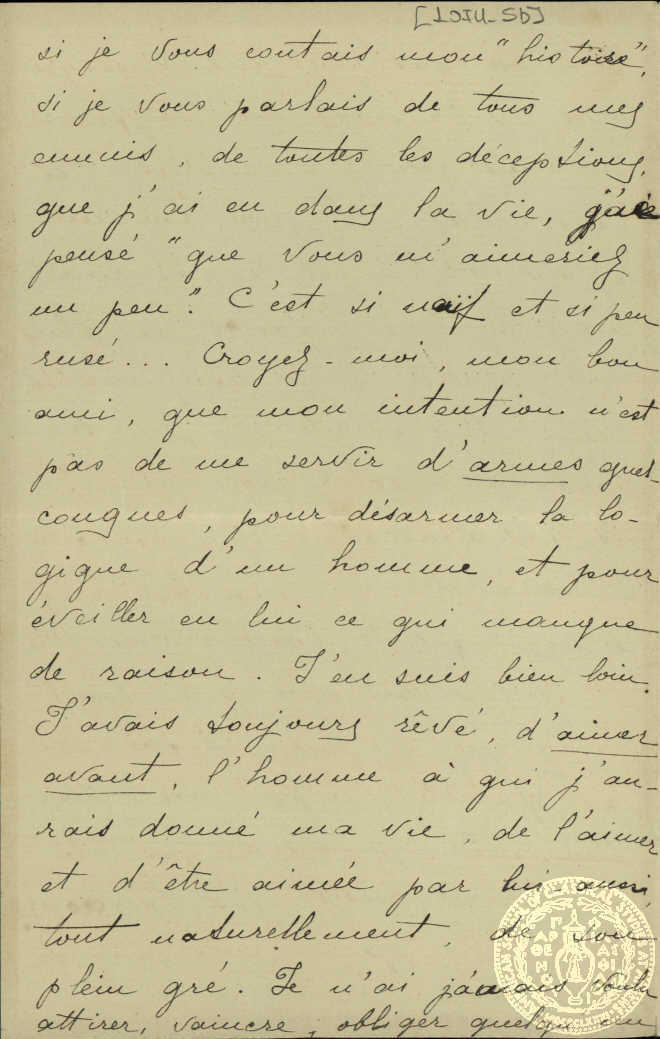 si je vous contais mon "histoire",
si je vous parlais de tous mes
ennuis, de toutes les déceptions,
que j'ai eu dans la vie, j'ai
pensé "que vous m'aimeriez
un peu". C'est si naïf et si peu
rusé... Croyez-moi, mon bon
ami, que mon intention n'est
pas de me servir d'armes quel-
conques, pour désarmer la lo-
gique d'un homme, et pour
éveiller en lui ce qui manque
de raison. J'en suis bien loin.
J'avais toujours rêvé, d'aimer
avant, l'homme à qui j'au-
rais donné ma vie, de l'aimer
et d'être aimée par lui aussi,
tout naturellement, de son
plein gré. Je n'ai jamais voulu
attirer, vaincre, obliger quelqu'un